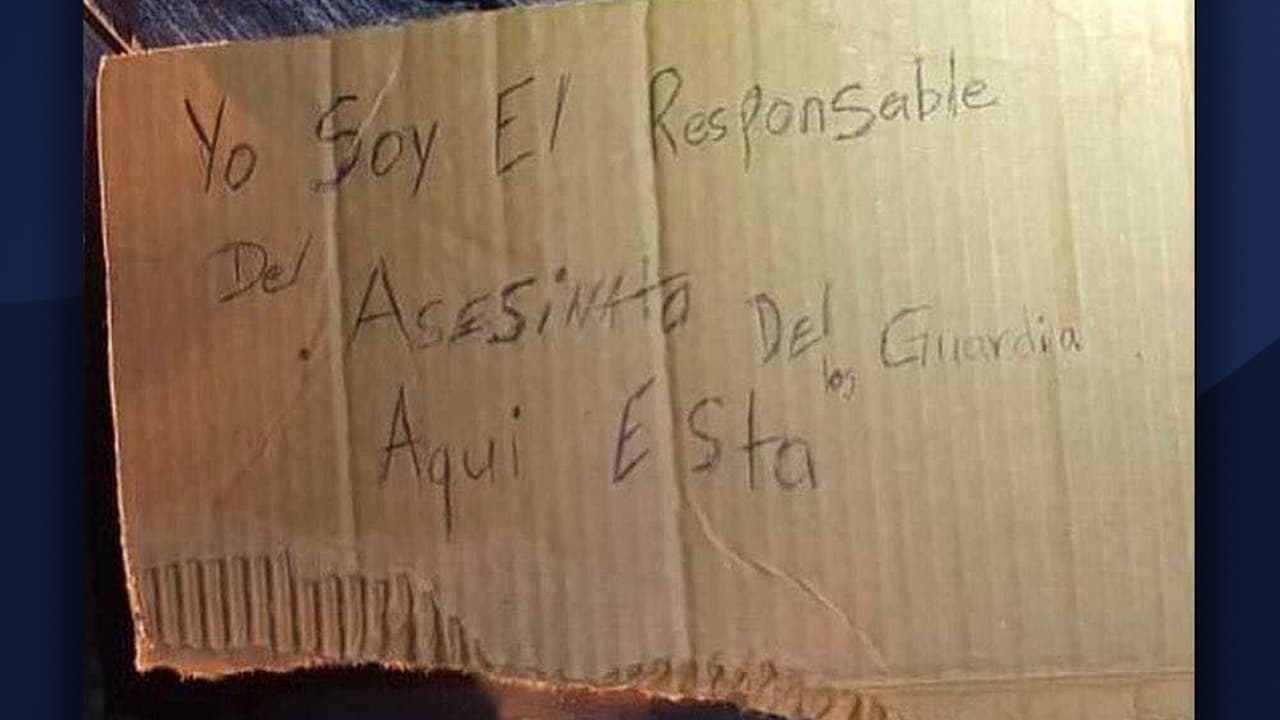 Yo Soy El Responsable
Del Asesinato Del Guardia
los
Aqui Esta